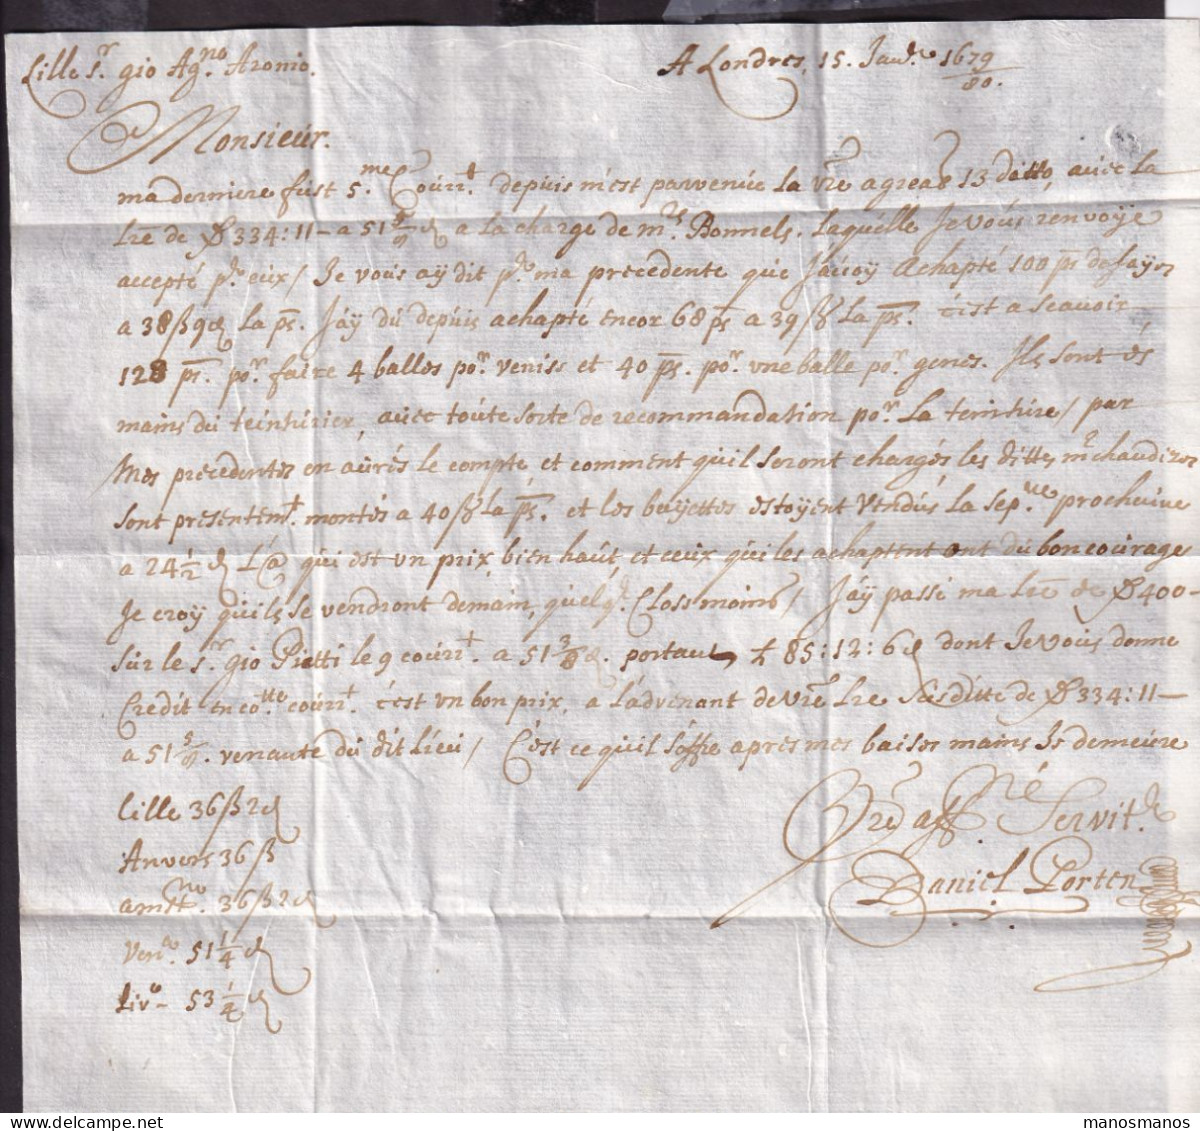 Lille Sr. gio Agno. Aronio.
A Londres, 15. Janv.e 1679/80.
Monsieur.
ma derniere fust 5.me Courrt. depuis m'est parvenüe la vre agreab 13 ditto, avecc la
Lre de ₯ 334:11 – a 51 5/9 d a la charge de mrs Bonnels. laquelle Je vous renvoye
accepté pr. eux / Je vous ay dit pr. ma precedente que J'avoy achapté 100 ps de sayes
a 38 ß 9 d La ps. J'ay du depuis achapté encor 68 ps a 39 ß La ps. c'est a scavoir
128 ps. por. faire 4 balles por. veniss et 40 ps. por. une balle por. genes. Ils sont és
mains du teinturier, avecc toute sorte de recommandation por. La teinture / par
Mes precedentes en aurés le compte et comment qu'il seront chargés les dittes mrchandizes
sont presentemt. montés a 40 ß La ps. et les bayettes estoyent vendus la sep.ne prochaine
a 24 1/2 d L'a qui est un prix bien haut, et ceux qui les achaptent ont du bon courage
Je croy qu'ils se vendront demain, quelq. Closs moins / J'ay passé ma Lre de ₯ 400 –
sur le Sr. gio Piatti le 9 courrt. a 51 3/8 d. portant £ 85:12:6 d dont Je vous donne
Credit en co.tte courrt. c'est un bon prix, a l'advenant de vre Lre susditte de ₯ 334:11 –
a 51 5/9. venante du dit Lieu / C'est ce qu'il s'offre apres mes baises mains Je demeure
Vre affne. Servit.r
Daniel Porten
Lille 36 ß 2 d
Anvers 36 ß
amstno. 36 ß 2 d
Ven.a 51 1/4 d
Liv.o – 53 1/4 d
manosmanos